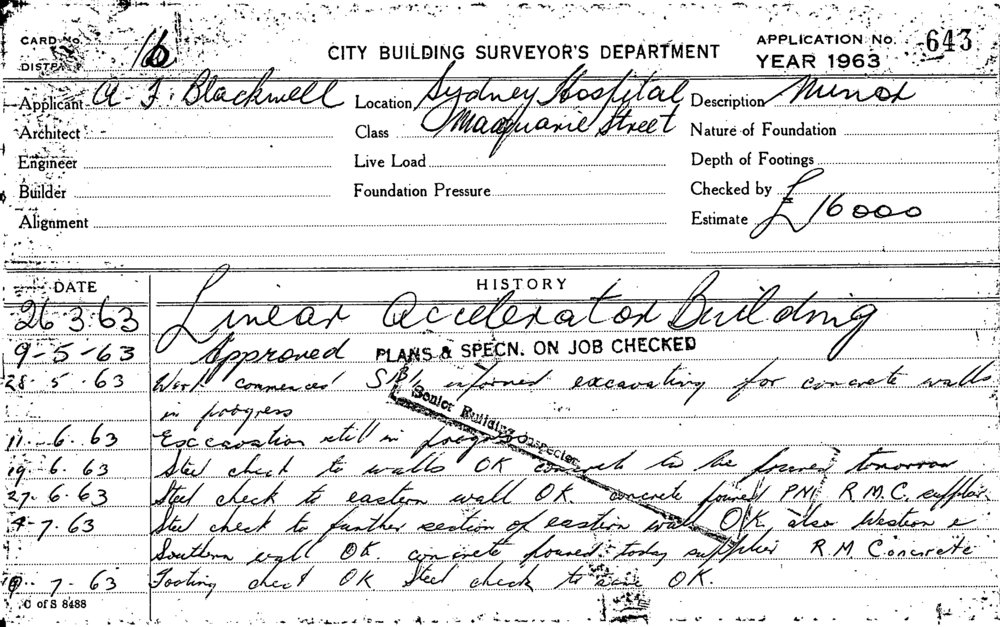 CARD No.
DISTP.
16
CITY BUILDING SURVEYOR'S DEPARTMENT
APPLICATION No. 643
YEAR 1963
Applicant A. F. Blackwell
Location Sydney Hospital
Macquarie Street
Description Minor
Architect
Class
Nature of Foundation
Engineer
Live Load
Depth of Footings
Builder
Foundation Pressure
Checked by
Alignment
Estimate £16000
DATE HISTORY
26 3. 63 Linear Accelerator Building
9-5-63 Approved PLANS & SPECN. ON JOB CHECKED
28. 5. 63 Work commenced informed excavating for concrete walls
in progress
Senior Building Inspector
11. 6. 63 Excavation still in progress
19. 6. 63 Steel check to walls OK to be poured tomorrow
27. 6. 63 Steel check to eastern wall OK concrete poured PM R.M.C. supplier
4-7. 63 Steel check to further section of eastern wall OK, also Western &
Southern wall OK. concrete poured today supplier R.M. Concrete
7. 63 Footing check OK Steel check to OK.
C of S 8488